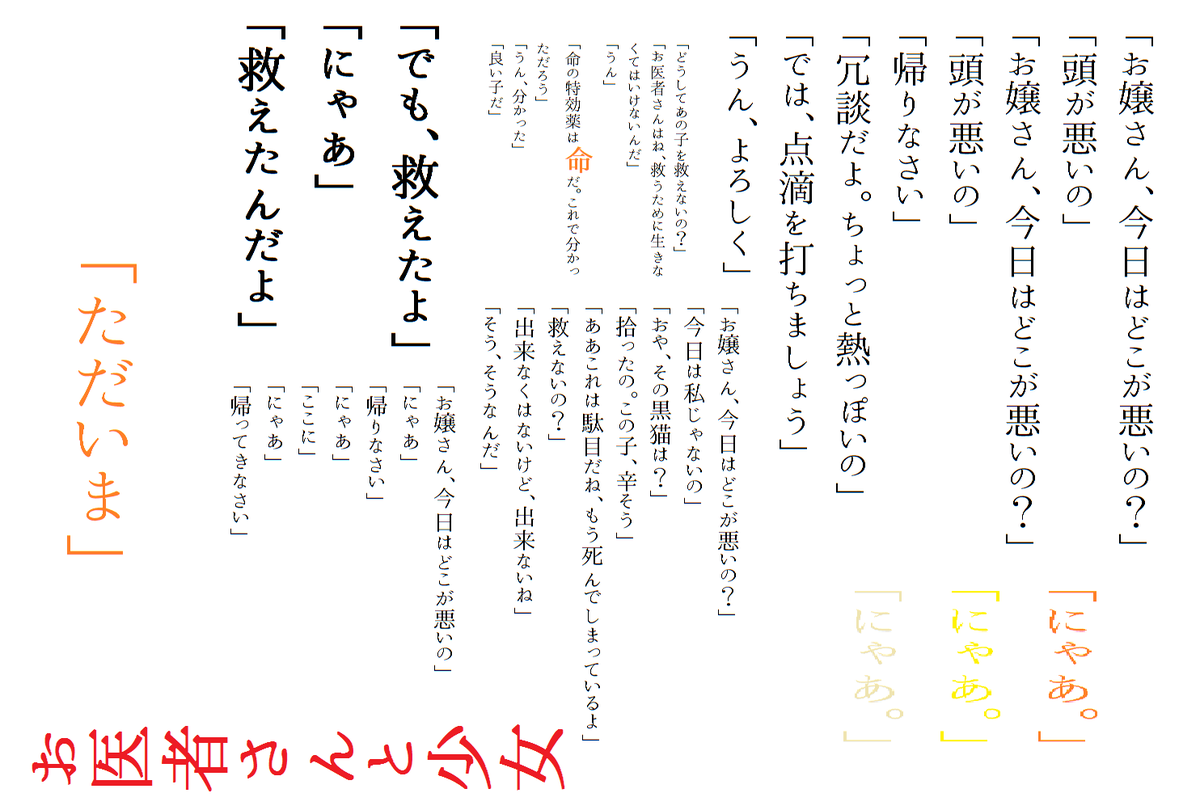 「お嬢さん、今日はどこが悪いの？」
「頭が悪いの」
「お嬢さん、今日はどこが悪いの？」
「頭が悪いの」
「帰りなさい」
「冗談だよ。ちょっと熱っぽいの」
「では、点滴を打ちましょう」
「うん、よろしく」
「どうしてあの子を救えないの？」
「お医者さんはね、救うために生きな
くてはいけないんだ」
「うん」
「命の特効薬は命だ。これで分かっ
ただろう」
「うん、分かった」
「良い子だ」
「お嬢さん、今日はどこが悪いの？」
「今日は私じゃないの」
「おや、その黒猫は？」
「拾ったの。この子、辛そう」
「ああこれは駄目だね、もう死んでしまっているよ」
「救えないの？」
「出来なくはないけど、出来ないね」
「そう、そうなんだ」
「でも、救えたよ」
「にゃあ」
「救えたんだよ」
「お嬢さん、今日はどこが悪いの」
「にゃあ」
「帰りなさい」
「にゃあ」
「ここに」
「にゃあ」
「帰ってきなさい」
「ただいま」
「にゃあ。」
「にゃあ。」
「にゃあ。」
お医者さんと少女